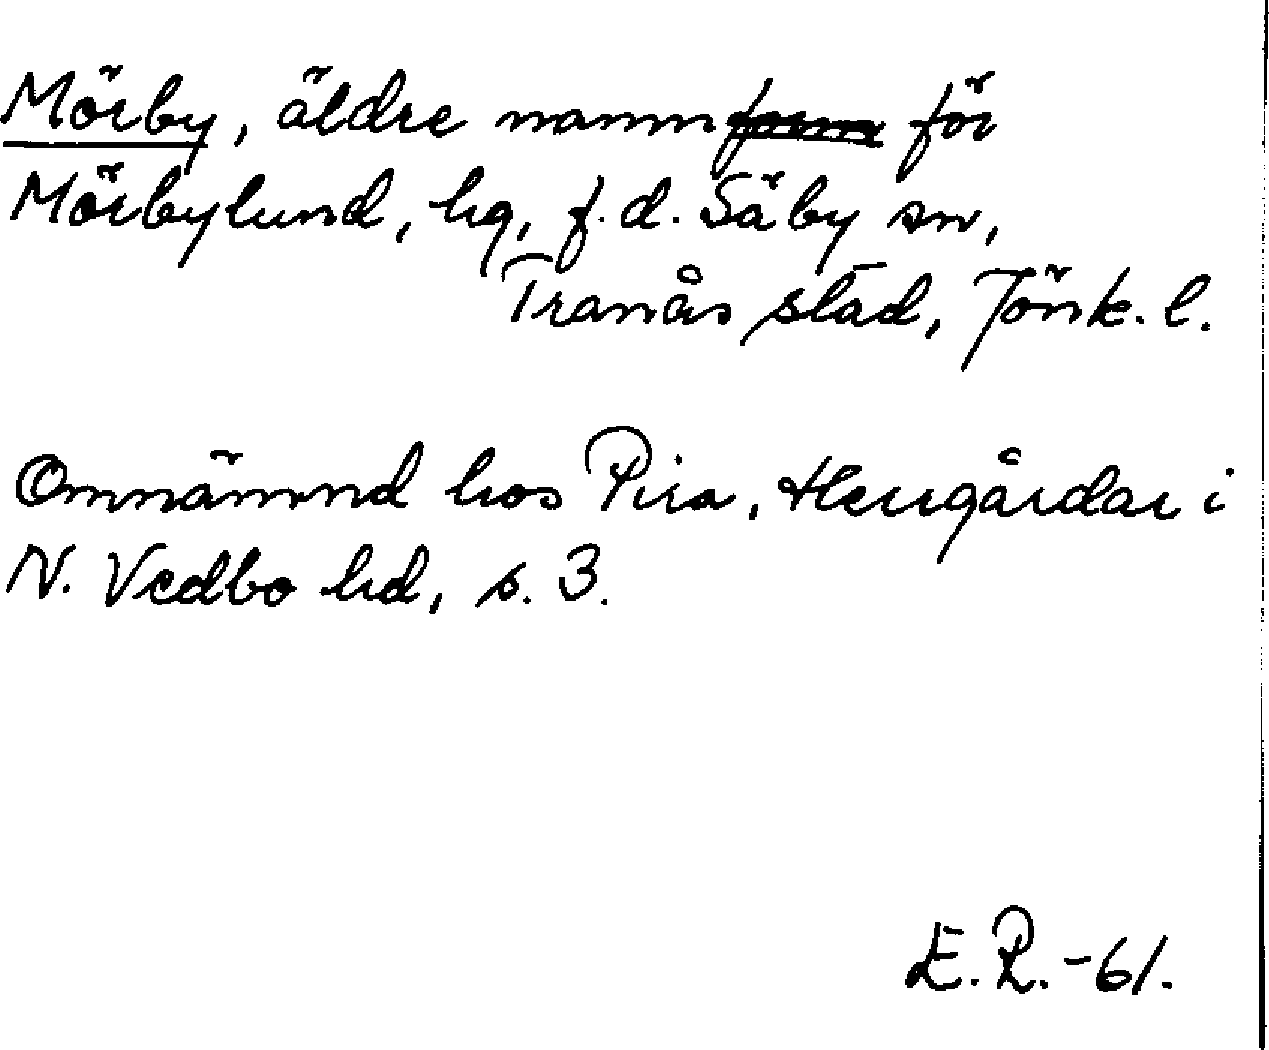 Mörby, äldre namn för
Mörbylund, hg, f.d. Säby sn,
Tranås stad, Jönk. l.
Omnämnd hos Pira, Herrgårdar i
N. Vedbo hd, s. 3.
E.P.-61.